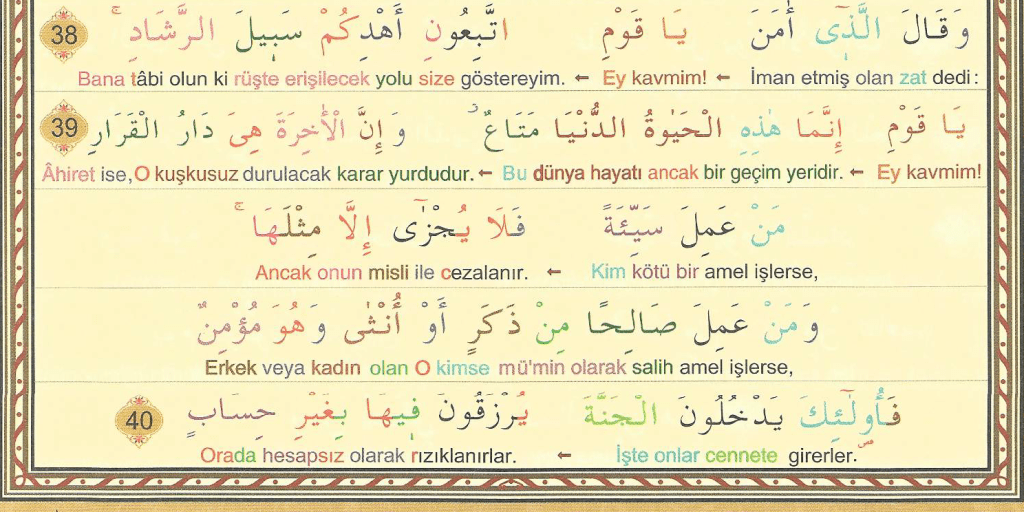 وَقَالَ الَّذٖٓي اٰمَنَ يَا قَوْمِ اتَّبِعُونِ اَهْدِكُمْ سَبٖيلَ الرَّشَادِۚ 38
Bana tâbi olun ki rüşte erişilecek yolu size göstereyim. ← Ey kavmim! ← İman etmiş olan zat dedi:
يَا قَوْمِ إِنَّمَا هٰذِهِ الْحَيٰوةُ الدُّنْيَا مَتَاعٌ وَإِنَّ الْاٰخِرَةَ هِيَ دَارُ الْقَرَارِ 39
Âhiret ise, O kuşkusuz durulacak karar yurdudur. ← Bu dünya hayatı ancak bir geçim yeridir. ← Ey kavmim!
مَنْ عَمِلَ سَيِّئَةً فَلَا يُجْزٰٓى إِلَّا مِثْلَهَاۚ
Ancak onun misli ile cezalanır. ← Kim kötü bir amel işlerse,
وَمَنْ عَمِلَ صَالِحًا مِنْ ذَكَرٍ أَوْ أُنْثٰى وَهُوَ مُؤْمِنٌ
Erkek veya kadın olan O kimse mü'min olarak salih amel işlerse,
فَأُولٰٓئِكَ يَدْخُلُونَ الْجَنَّةَ يُرْزَقُونَ فٖيهَا بِغَيْرِ حِسَابٍ 40
Orada hesapsız olarak rızıklanırlar. ← İşte onlar cennete girerler.